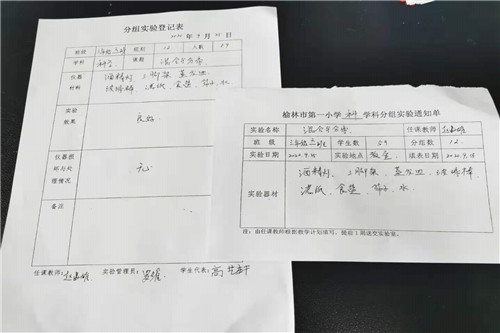 分组实验登记表
班级 三年级三班 组别 12 人数 59
学科 科学 课题 混合与分离
仪器材料 酒精灯、三脚架、蒸发皿
玻璃棒、滤纸、食盐、筛子、水
实验效果 良好
仪器损坏与处理情况 无
备注
任课教师: 实验管理员: 学生代表:
榆林市第一小学 科 学科分组实验通知单
实验名称 混合与分离 任课教师
班级 三年级三班 学生数 59 分组数 12
实验日期 2020.9.15 实验地点 教室 填表日期
实验器材 酒精灯、三脚架、蒸发皿、玻璃棒
滤纸、食盐、筛子、水
注:由任课教师根据教学计划填写,提前1周送交实验室。